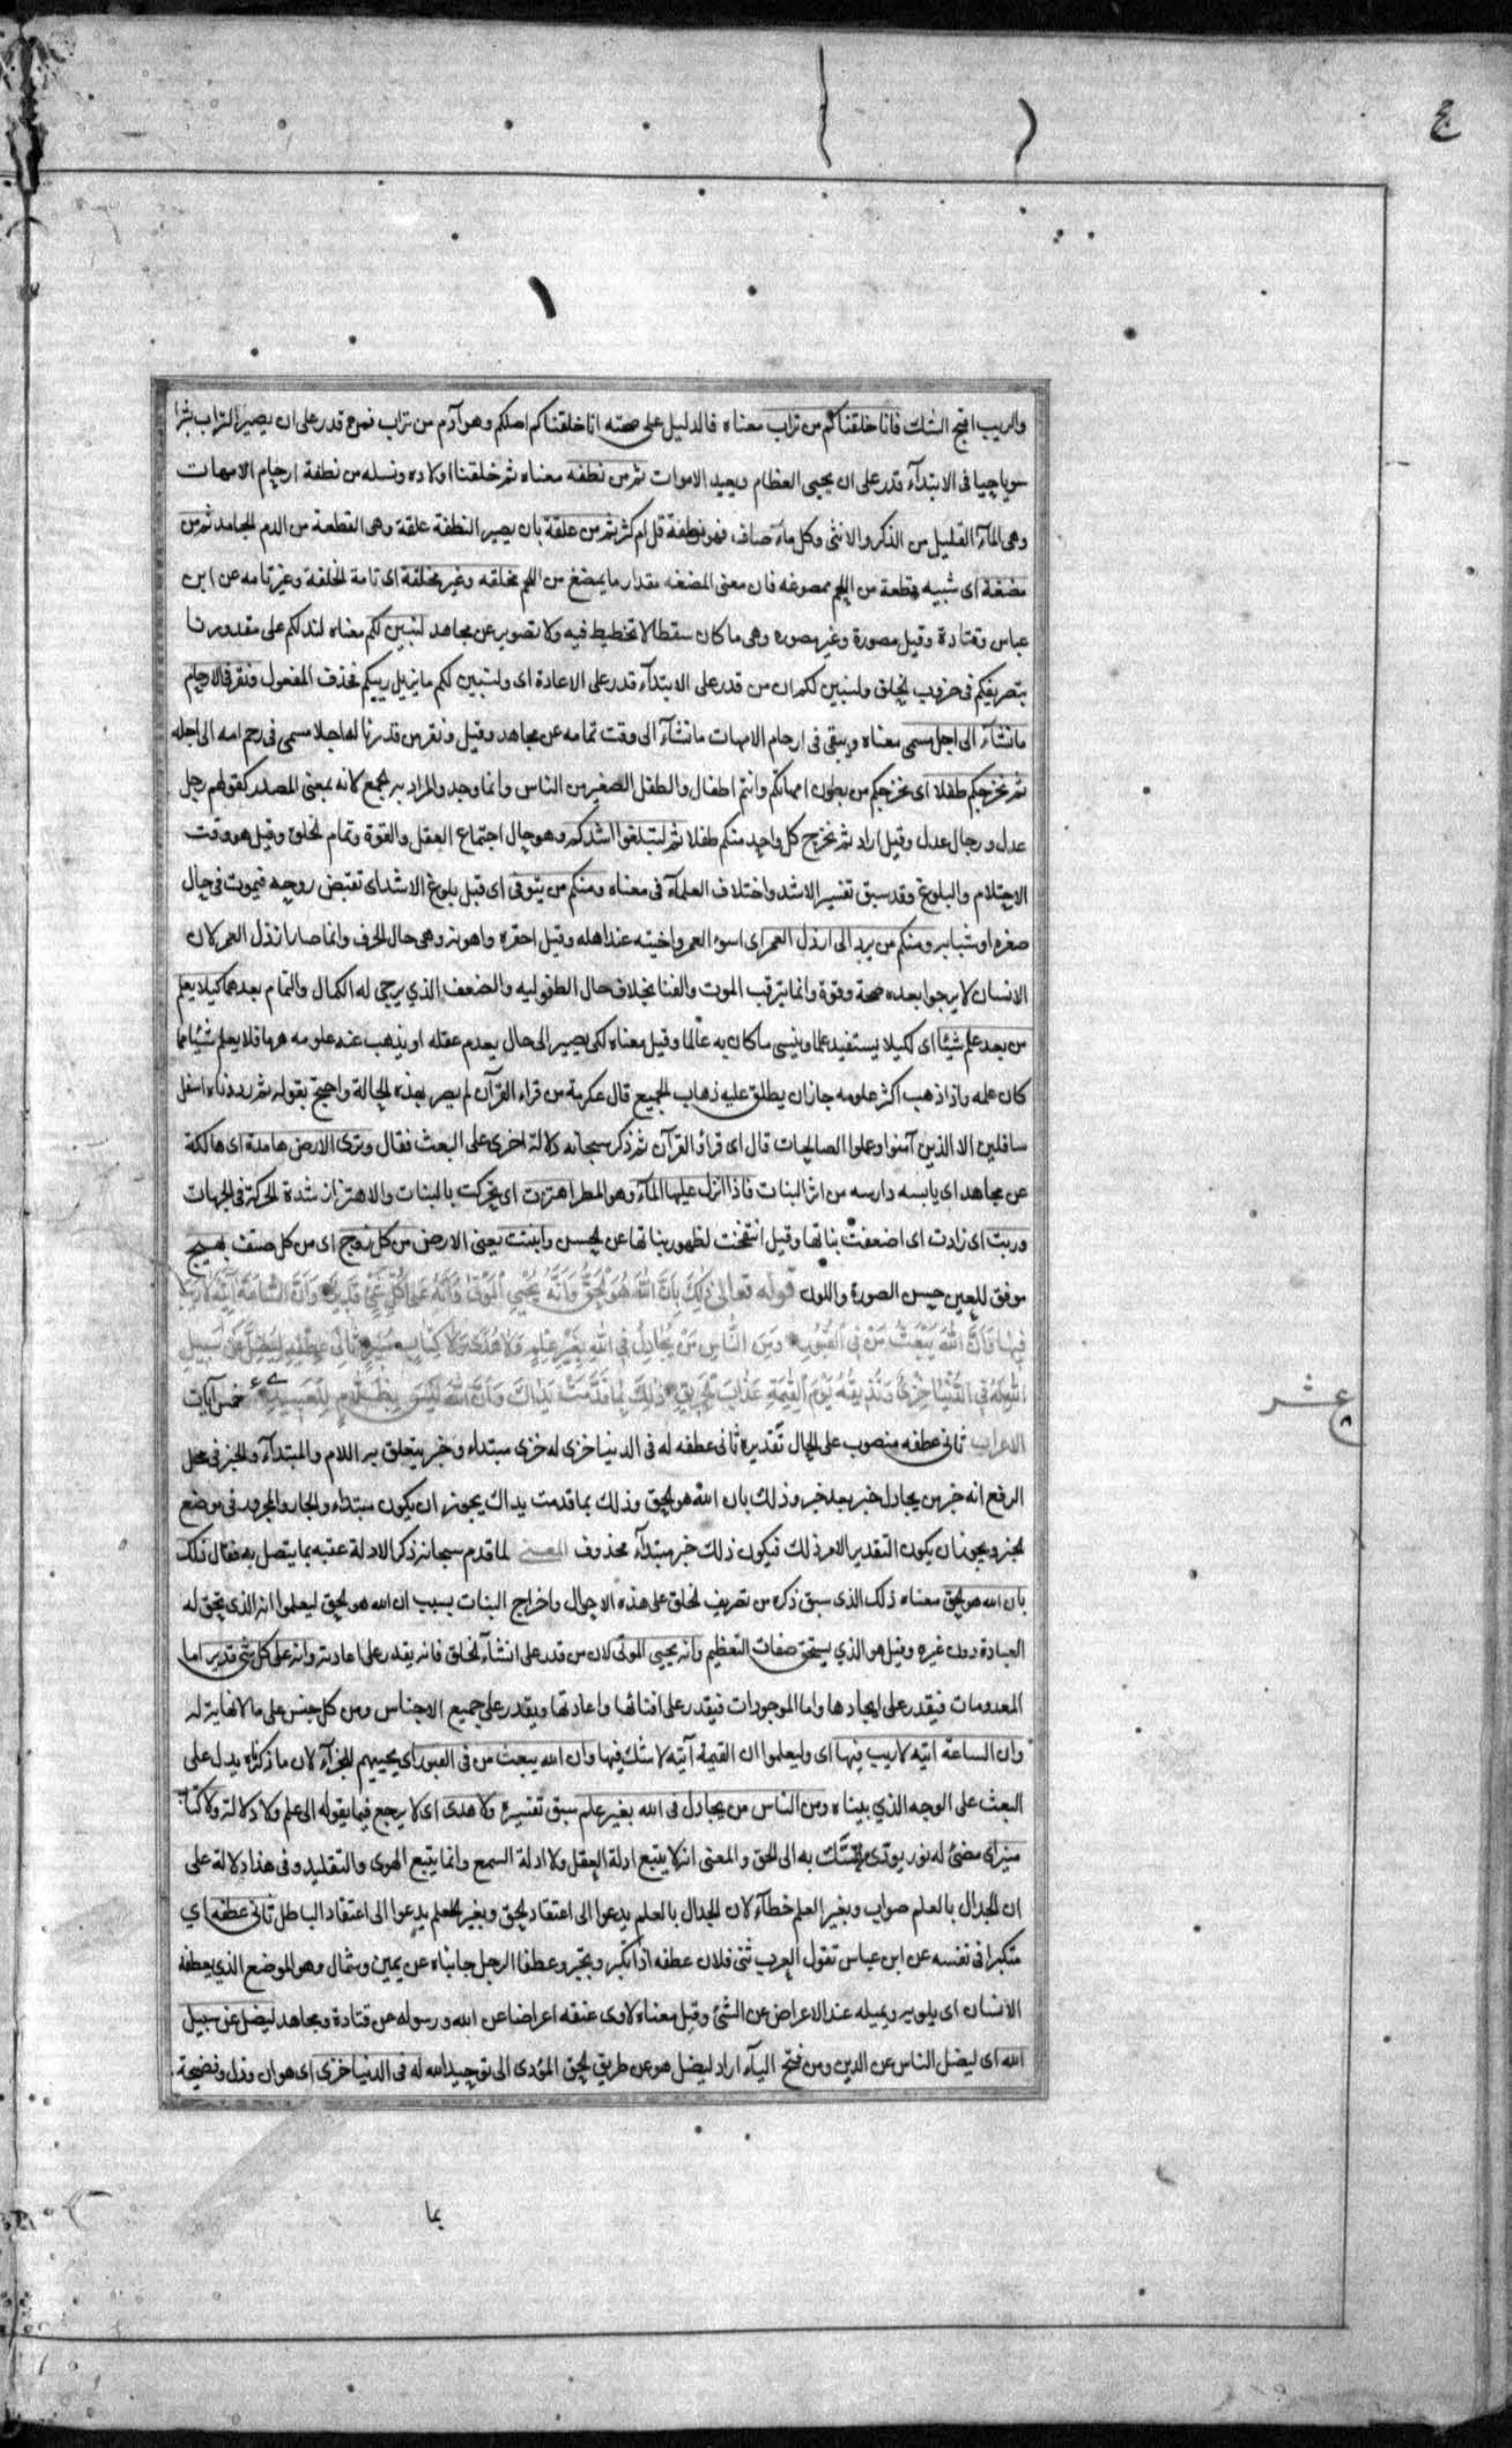 ع
والريب اقبح الشك فانا خلقناكم من تراب معناه فالدليل على صحته انا خلقناكم اصلكم وهو آدم من تراب فمن قدر على ان يصير التراب بشرا
سويا حيا فى الابتدآء قدر على ان يحيى العظام ويعيد الاموات ثم من نطفه معناه ثم خلقنا اولاده ونسله من نطفة ارحام الامهات
وهى المآء القليل من الذكر والانثى وكل مآء صاف فهو نطفة قل ام كثر ثم من علقة بان يصير النطفة علقة وهى القطعة من الدم الجامد ثم من
مضغة اى شبيه قطعة من اللحم ممضوغه فان معنى المضغه مقدار ما يمضغ من اللحم مخلقه وغير مخلقة اى تامة الخلقة وغير تامه عن ابن
عباس وقتادة وقيل مصورة وغير مصوره وهى ما كان سقطا لا تخطيط فيه ولا تصوير عن مجاهد لنبين لكم معناه لندلكم على مقدورنا
بتصريفكم فى ضروب الخلق ولنبين لكم ان من قدر على الابتدآء قدر على الاعادة اى ولنبين لكم ما يزيل ريبكم فحذف المفعول ونقر فى الارحام
ما نشآء الى اجل مسمى معناه ويبقى فى ارحام الامهات ما نشآء الى وقت تمامه عن مجاهد وقيل ونقر من قدرنا له اجلا مسمى فى رحم امه الى اجله
ثم نخرجكم طفلا اى نخرجكم من بطون امهاتكم وانتم اطفال والطفل الصغير من الناس وانما وحد والمراد به الجمع لانه بمعنى المصدر كقولهم رجل
عدل ورجال عدل وقيل اراد ثم نخرج كل واحد منكم طفلا ثم لتبلغوا اشدكم وهو حال اجتماع العقل والقوة وتمام الخلق وقيل هو وقت
الاحتلام والبلوغ وقد سبق تفسير الاشد واختلاف العلمآء فى معناه ومنكم من يتوفى اى قبل بلوغ الاشد اى تقبض روحه فيموت فى حال
صغره او شبابه ومنكم من يرد الى ارذل العمر اى اسوء العمر واخبثه عند اهله وقيل احقره واهونه وهى حال الخرف وانما صار ارذل العمر لان
الانسان لا يرجوا بعده صحة وقوة وانما يترقب الموت والفنا بخلاف حال الطفوليه والضعف الذي يرجى له الكمال والتمام بعدهما كيلا يعلم
من بعد علم شيئا اى لكيلا يستفيد علما وينسى ما كان به عالما وقيل معناه لكى يصير الى حال يعدم عقله او يذهب عنه علومه هرما فلا يعلم شيئا مما
كان علمه واذا ذهب اكثر علومه جاز ان يطلق عليه ذهاب الجميع قال عكرمة من قراء القرآن لم يصر بهذه الحالة واحتج بقوله ثم رددناه اسفل
سافلين الا الذين آمنوا وعملوا الصالحات قال اى قراؤ القرآن ثم ذكر سبحانه دلالة اخرى على البعث فقال وترى الارض هامدة اى هالكة
عن مجاهد اى يابسه دارسه من اثر النبات فاذا انزل عليها المآء وهو المطر اهتزت اى تحركت بالنبات والاهتزاز شدة الحركة فى الجهات
وربت اى زادت اى اضعفت نباتها وقيل انتفخت لظهور نباتها عن الحسن وانبتت يعنى الارض من كل زوج اى من كل صنف بهيج
مونق للعين حسن الصورة واللون قوله تعالى ذلك بان الله هو الحق وانه يحيي الموتى وانه على كل شئ قدير وان الساعة آتية لا ريب
فيها وان الله يبعث من فى القبور ومن الناس من يجادل فى الله بغير علم ولا هدى ولا كتاب منير ثانى عطفه ليضل عن سبيل
الله له فى الدنيا خزى ونذيقه يوم القيمة عذاب الحريق ذلك بما قدمت يداك وان الله ليس بظلام للعبيد خمس آيات
عشر
الاعراب ثانى عطفه منصوب على الحال تقديره ثانى عطفه له فى الدنيا خزى له خزى مبتداء وخبر يتعلق به اللام والمبتدآء والخبر فى محل
الرفع انه خبر من يجادل خبر بعد خبر وذلك بان الله هو الحق وذلك بما قدمت يداك يجوز ان يكون مبتداء والجار والمجرور فى موضع
الخبر ويجوز ان يكون التقدير الامر ذلك فيكون ذلك خبر مبتدآء محذوف المعنى لما قدم سبحانه ذكر الادلة عقبه بما يتصل به فقال ذلك
بان الله هو الحق معناه ذلك الذى سبق ذكره من تصريف الخلق على هذه الاحوال واخراج النبات بسبب ان الله هو الحق ليعلموا انه الذى تحق له
العبادة دون غيره وقيل هو الذي يستحق صفات التعظيم وانه يحيى الموتى لان من قدر على انشآء الخلق فانه يقدر على اعادته وانه على كل شئ قدير اما
المعدومات فيقدر على ايجادها واما الموجودات فيقدر على افنائها واعادتها ويقدر على جميع الاجناس ومن كل جنس على ما لا نهاية له
وان الساعة اتيه لا ريب فيها اى وليعلموا ان القيمة آتيه لا شك فيها وان الله يبعث من فى القبور اى يحييهم للجزآء لان ما ذكرناه يدل على
البعث على الوجه الذي بيناه ومن الناس من يجادل فى الله بغير علم سبق تفسيره ولا هدى اى لا يرجع فيما يقوله الى علم ولا دلالة ولا كتاب
منير اى مضئ له نور يودى من تمسك به الى الحق والمعنى انه لا يتبع ادلة العقل ولا ادلة السمع وانما يتبع الهوى والتقليد وفى هذا دلالة على
ان الجدال بالعلم صواب وبغير العلم خطآء لان الجدال بالعلم يدعوا الى اعتقاد الحق وبغير العلم يدعوا الى اعتقاد الباطل ثانى عطفه اي
متكبرا فى نفسه عن ابن عباس تقول العرب ثنى فلان عطفه اذا تكبر وتجبر وعطفا الرجل جانباه عن يمين وشمال وهو الموضع الذي يعطفه
الانسان اى يلويه ويميله عند الاعراض عن الشئ وقيل معناه لاوى عنقه اعراضا عن الله ورسوله عن قتادة ومجاهد ليضل عن سبيل
الله اى ليضل الناس عن الدين ومن فتح اليآء اراد ليضل هو عن طريق الحق المؤدى الى توحيد الله له فى الدنيا خزى اى هوان وذل وفضيحة
بما